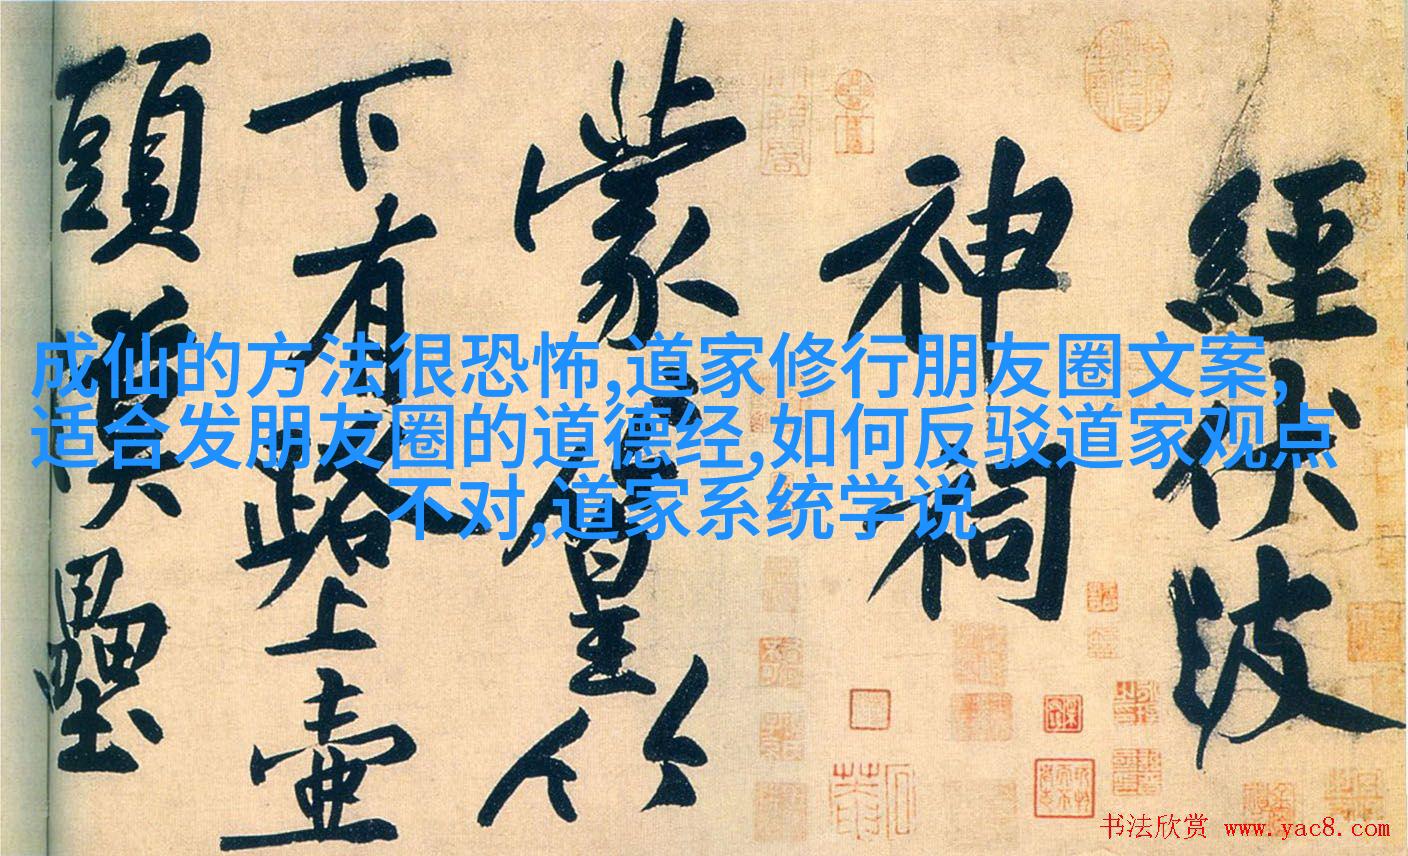 經伏波
神祠
蒙篁竹
下有路上壺
頭漢壘
成仙的方法很恐怖,道家修行朋友圈文案,
适合发朋友圈的道德经,如何反驳道家观点
不对,道家系统学说
书法欣赏 www.yac8.com